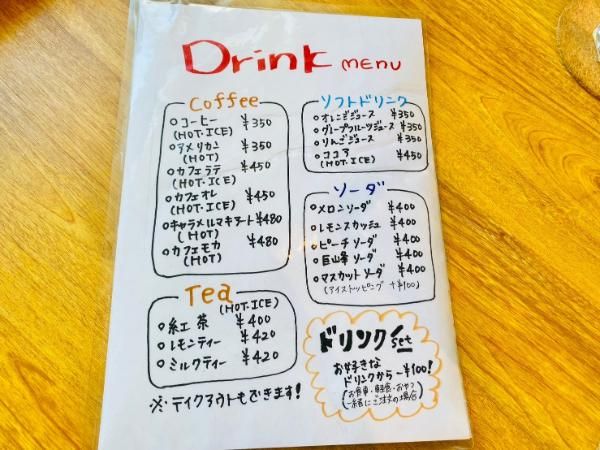 Drink MENU
Coffee
○コーヒー ¥350
(HOT・ICE)
○アメリカン ¥350
(HOT)
○カフェラテ ¥450
(HOT・ICE)
○カフェオレ ¥450
(HOT・ICE)
○キャラメルマキアート ¥480
(HOT)
○カフェモカ ¥480
(HOT)
Tea
(HOT・ICE)
○紅茶 ¥400
○レモンティー ¥420
○ミルクティー ¥420
※テイクアウトもできます!
ソフトドリンク
○オレンジジュース ¥350
○グレープフルーツジュース ¥350
○りんごジュース ¥350
○ココア ¥450
(HOT・ICE)
ソーダ
○メロンソーダ ¥400
○レモンスカッシュ ¥400
○ピーチソーダ ¥400
○巨山峯ソーダ ¥400
○マスカットソーダ ¥400
(アイストッピング +¥100)
ドリンクset
お好きな
ドリンクから-¥100!
(お食事・軽食・おやつ
一緒にご注文の場合)